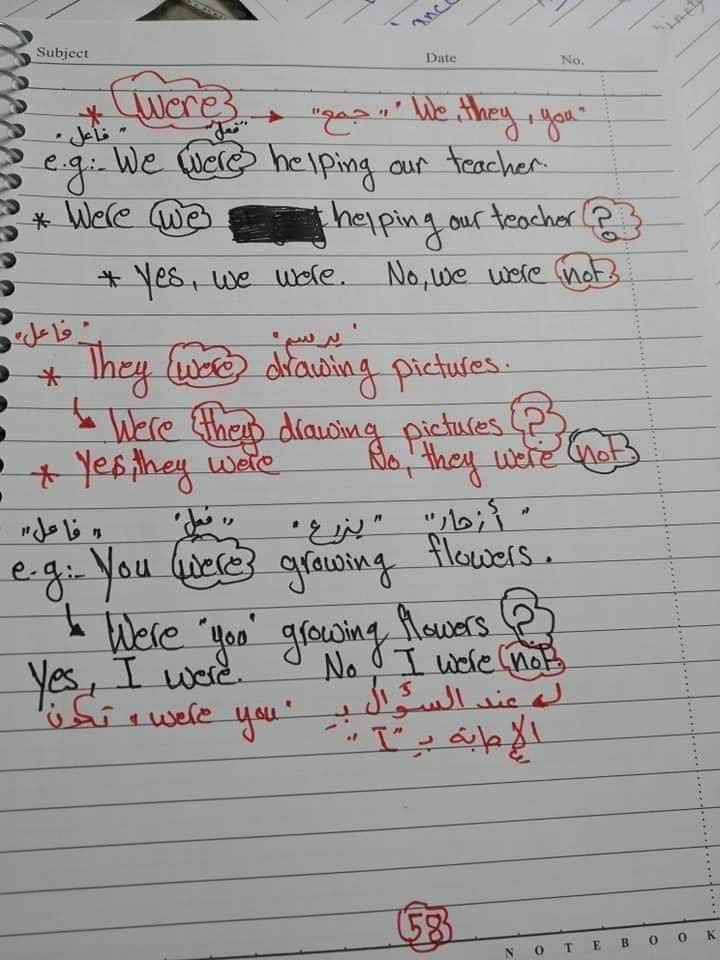 Subject Date No.
* were → "جمع" "We, they, you"
"فاعل" "فعل"
e.g:- We were helping our teacher.
* Were we helping our teacher ?
* Yes, we were. No, we were not.
"فاعل" "يرسم"
* They were drawing pictures.
↳ Were they drawing pictures ?
* Yes, they were No, they were not.
"فاعل" "فعل" "يزرع" "أزهار"
e.g:- You were growing flowers.
↳ Were "you" growing flowers ?
Yes, I were. No, I were not.
له عند السؤال بـ "were you" تكون
الإجابة بـ "I"
58
NOTEBOOK